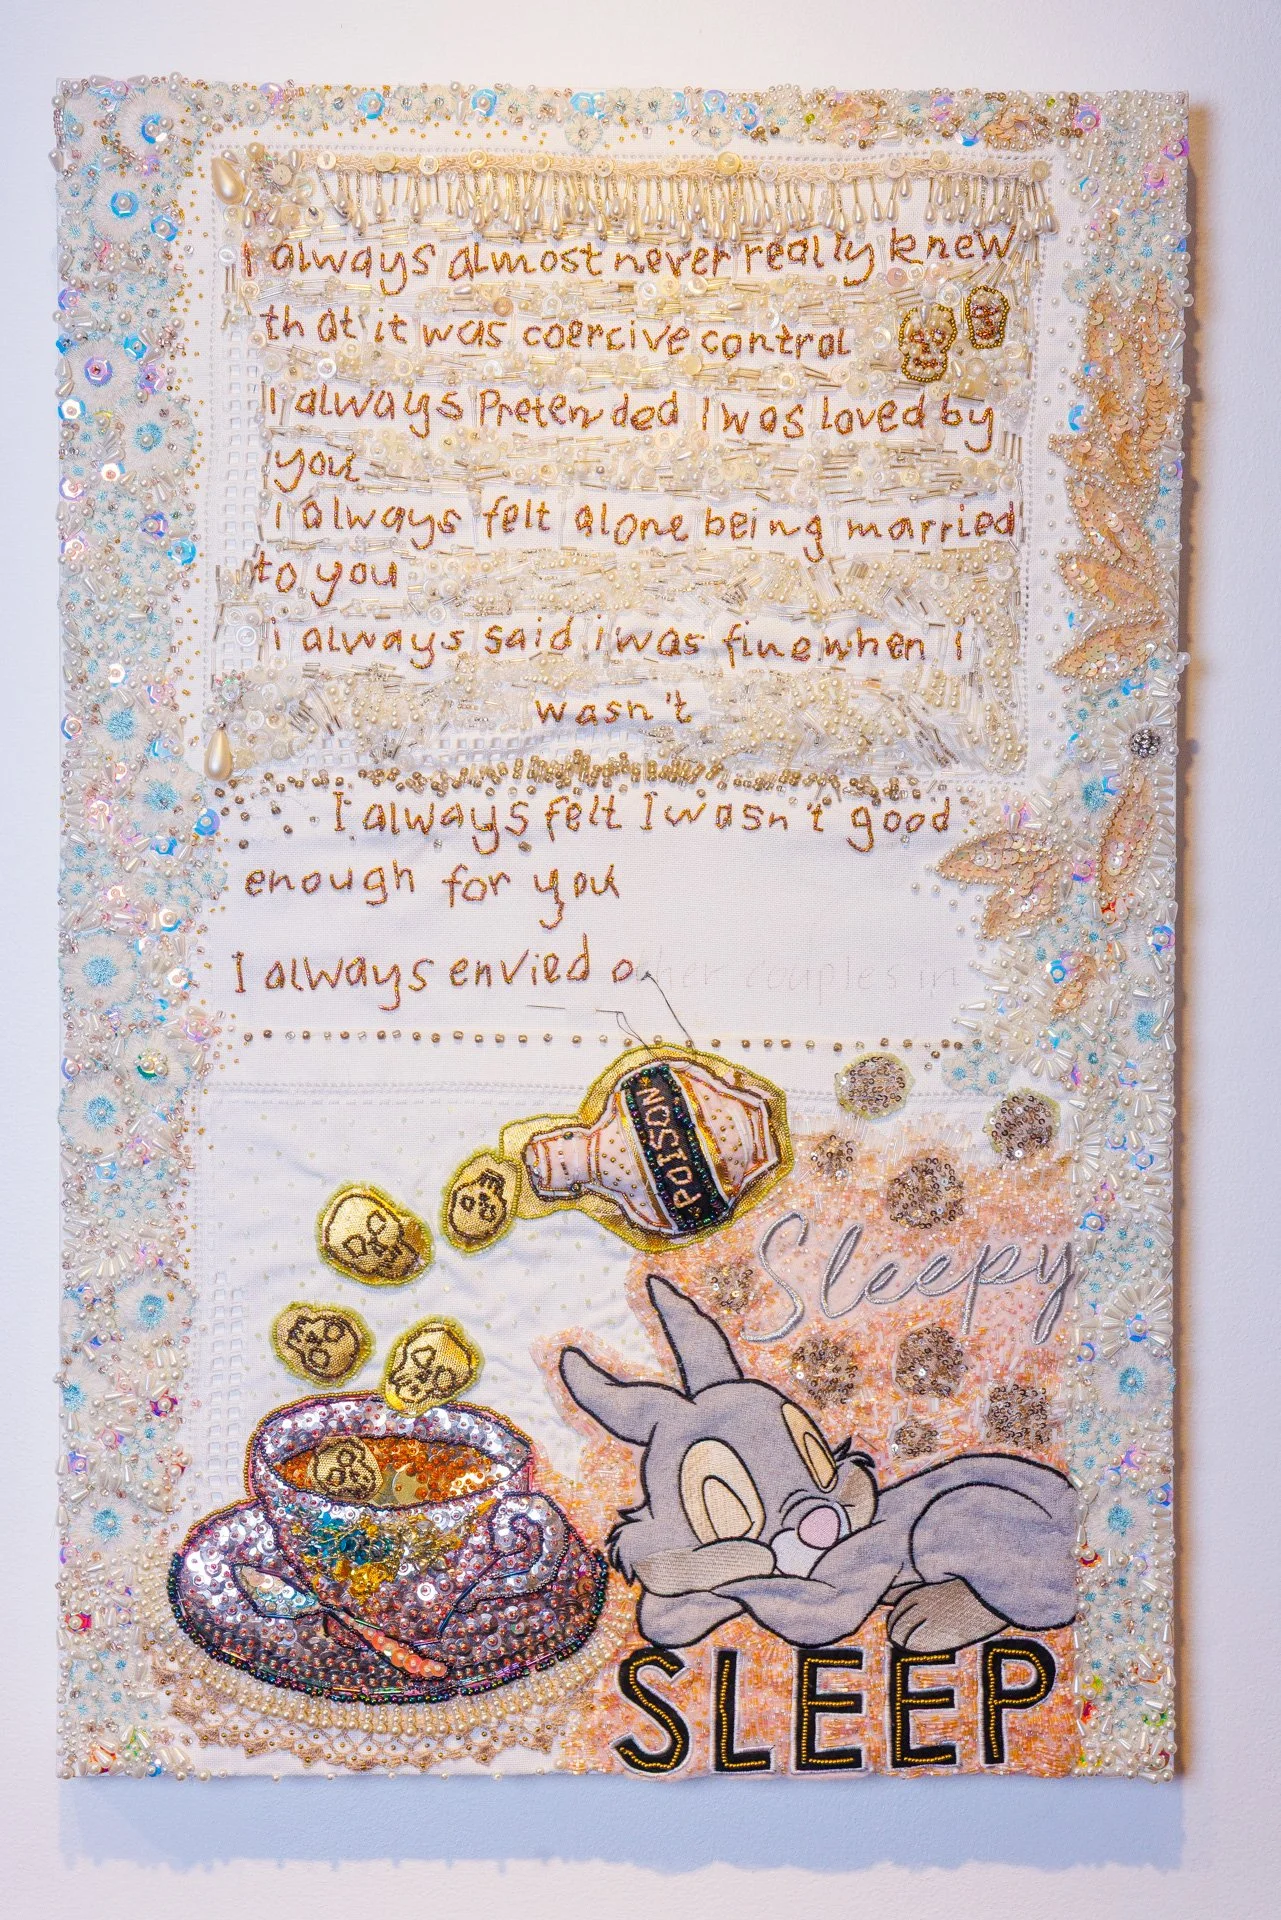 I always almost never really knew
that it was coercive control
I always Pretended I was loved by
you
i always felt alone being married
to you
i always said i was fine when I
wasn't
I always felt I wasn't good
enough for you
I always envied other couples in
POISON
Sleepy
SLEEP